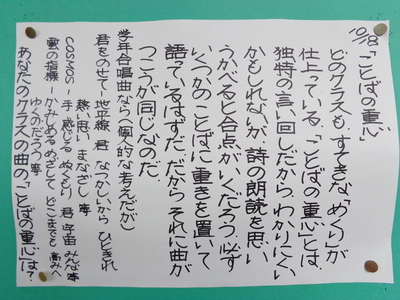 10/18「ことばの重心」
どのクラスもすてきな「めくり」が
仕上っている。「ことばの重心」とは、
独特の言い回しだから、わかりにくい
かもしれないが、詩の朗読を思い
うかべると合点がいくだろう。必ず
いくつかのことばに重きを置いて
語っているはずだ。だから、それに曲が
つこうが同じなのだ。
学年合唱曲なら(個人的な考えだが)
君をのせて-地平線 君 なつかしい から ひときれ
熱い思い まなざし 等
COSMOS-手 感じる ぬくもり 君 宇宙 みんな 等
歌の指標-かみしめる めざして どこまでも 高みへ
ゆくのだろう 等
あなたのクラスの曲の「ことばの重心」は?